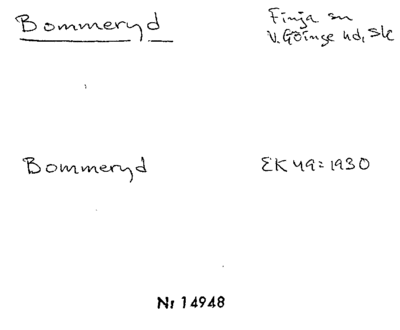 Bommeryd
Finja sn
V. Göinge hd, Sk
Bommeryd
EK 49: 1930
Nr 14948